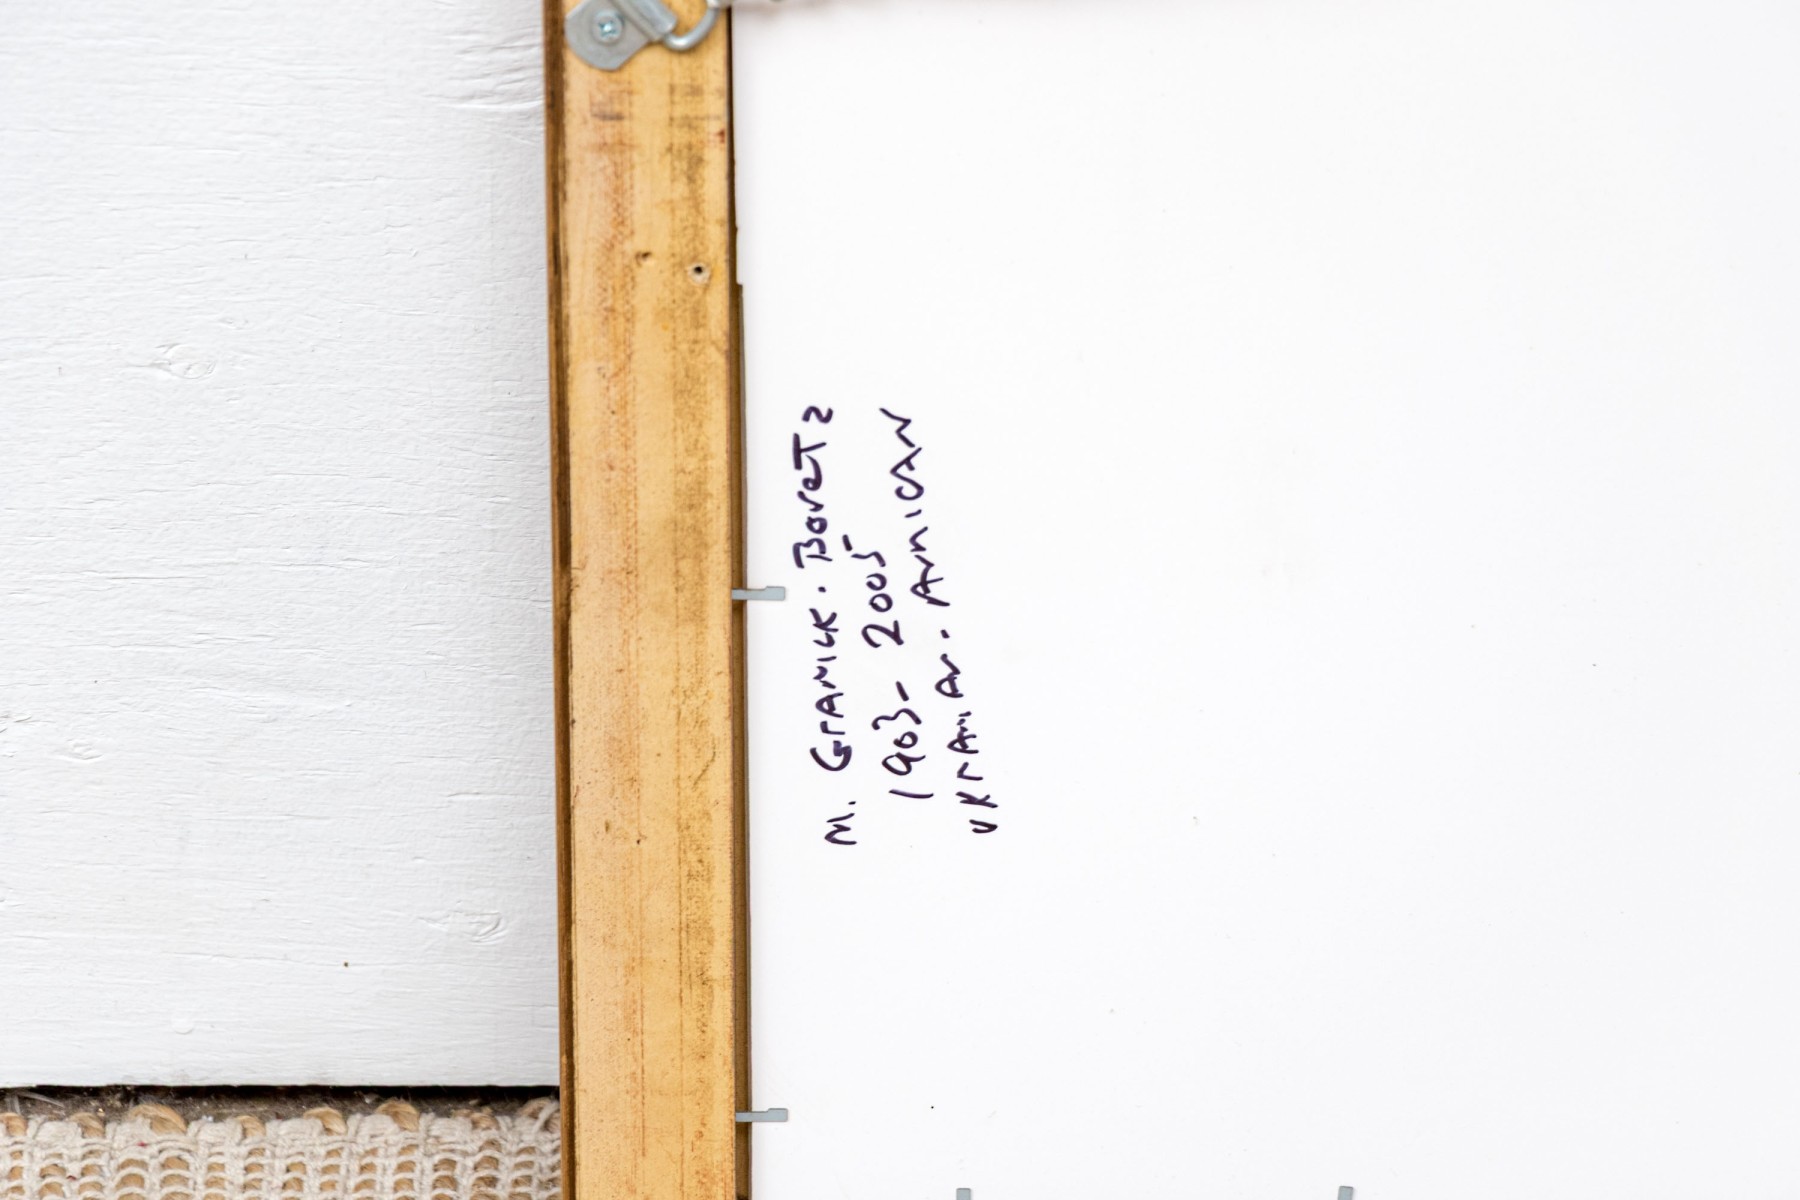 M. GrANICK. BoreTz
1903- 2005
UKrAiniAn. AmericAN